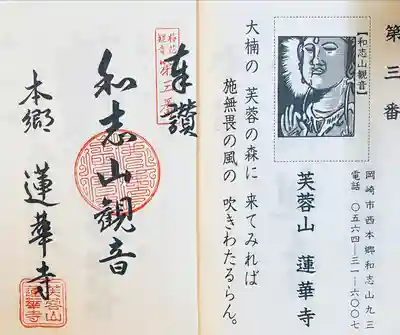 第三番
岡崎市西本郷和志山九三
電話 〇五六四―三一―六〇〇七
【和志山観音】
芙蓉山 蓮華寺
大楠の 芙蓉の森に 来てみれば
施無畏の風の 吹きわたるらん。
奉讃
第三番
和志山観音
本郷 蓮華寺
芙蓉山
蓮華寺